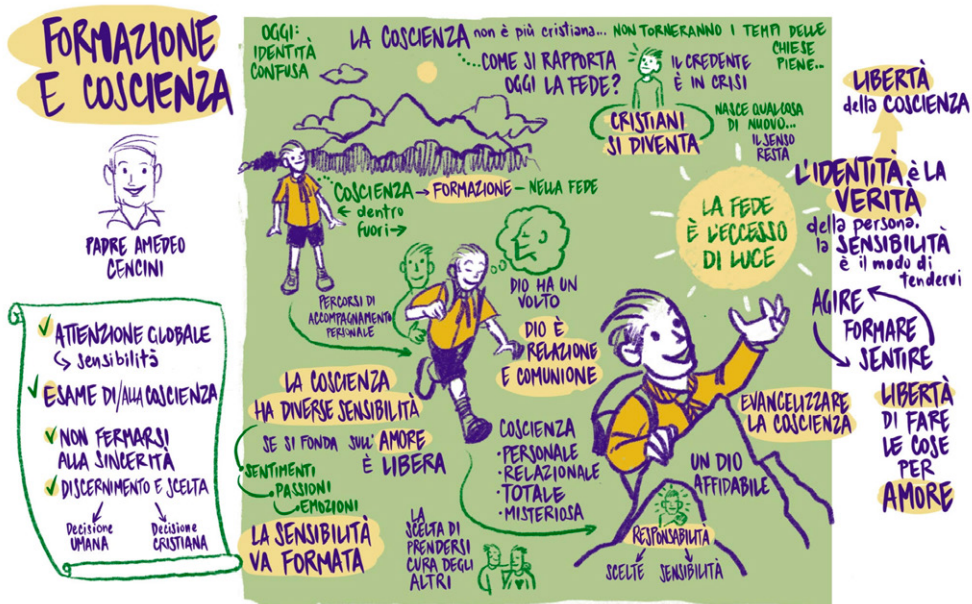 FORMAZIONE
E COSCIENZA
PADRE AMEDEO
CENCINI
ATTENZIONE GLOBALE
sensibilità
ESAME DI/ALLA COSCIENZA
NON FERMARSI
ALLA SINCERITÀ
DISCERNIMENTO E SCELTA
Decisione
UMANA
Decisione
CRISTIANA
OGGI:
IDENTITÀ
CONFUSA
LA COSCIENZA non è più cristiana... NON TORNERANNO I TEMPI DELLE
CHIESE
PIENE...
...COME SI RAPPORTA
OGGI LA FEDE?
IL CREDENTE
È IN CRISI
CRISTIANI
SI DIVENTA
NASCE QUALCOSA
DI NUOVO...
IL SENSO
RESTA
COSCIENZA → FORMAZIONE – NELLA FEDE
← dentro
fuori →
PERCORSI DI
ACCOMPAGNAMENTO
PERSONALE
DIO HA UN
VOLTO
DIO È
RELAZIONE
E COMUNIONE
LA FEDE
È L'ECCESSO
DI LUCE
LA COSCIENZA
HA DIVERSE SENSIBILITÀ
SE SI FONDA SULL'AMORE
È LIBERA
SENTIMENTI
PASSIONI
EMOZIONI
LA SENSIBILITÀ
VA FORMATA
COSCIENZA
• PERSONALE
• RELAZIONALE
• TOTALE
• MISTERIOSA
LA
SCELTA DI
PRENDERSI
CURA DEGLI
ALTRI
EVANGELIZZARE
LA COSCIENZA
UN DIO
AFFIDABILE
RESPONSABILITÀ
SCELTE SENSIBILITÀ
LIBERTÀ
della COSCIENZA
L'IDENTITÀ è LA
VERITÀ
della persona.
la SENSIBILITÀ
è il modo di
tendervi
AGIRE
FORMARE
SENTIRE
LIBERTÀ
DI FARE
LE COSE
PER
AMORE